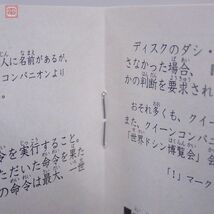 人に名前があるが、
コンパニオンより
令を実行すること。
ただいた命令を果た
の命令は最大、二世
ディスクのダシ・
さなかった場合、
かの判断を要求され
おそれ多くも、クイー
また、クイーンコンパニ
「世界ドシン博覧会」会
「！」マーク